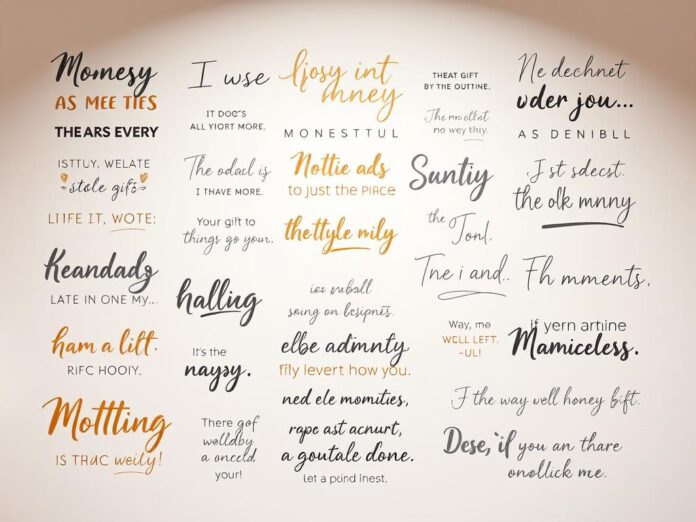 Momesy
AS MEE TIES
THEARS EVERY
ISTTUY, WELATE
stole gifs
LIIFE IT, WOTE:
Keandadg
LATE IN ONE MY...
ham a lilt.
RIFC HOOIY.
Mottting
IS THAC weily!
I wse
IT DOC'S
ALL YIORT MORE.
The odacl is
I THAVE MORE.
Your gift to
things go your..
halling
It's the
nayşy.
There gof
wolldby
a onceld
your!
ljosy int
mney
MONESTTUL
Nottie ads
to just the PIRCE
thettyle mily
soing on
elbe admnty
fily levert how you.
ned ele momities,
rape ast acnurt,
a goutale done.
Let a poind inest.
THEAT GIFT
BY THE OUTINE.
The
no wey thiy.
Suntiy
the
Tonl.
Tne i and..
Way, me
WELL LEFT.
-UL!
Ne dechnet
uder jou...
AS DENIBLL
J st sdecst.
the olk mnny
Fh mments,
if yern artine
Mamiceless.
J the way well honey bift.
Dese, 'if you an thare
onollick me.